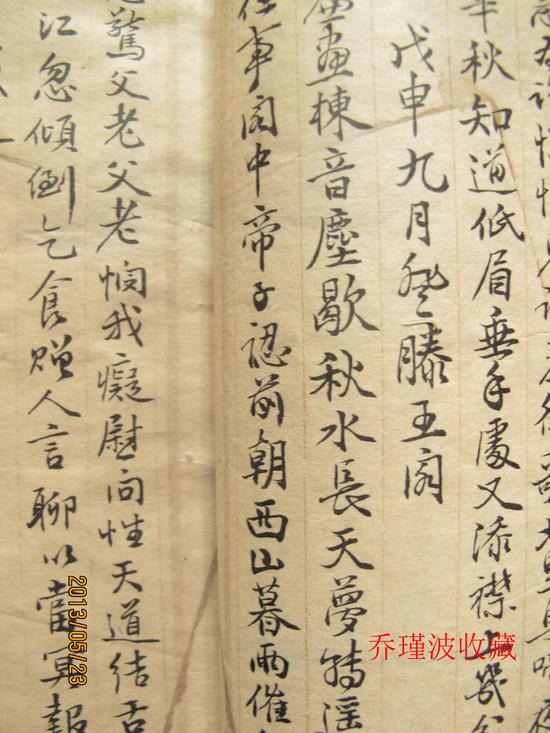 半秋知道低眉垂手處又添襟上幾
戊申九月登滕王閣
畫棟音塵歇秋水長天夢轉遥
事閣中帝子認前朝西山暮雨催
驚父老父老憫我癡慰問性天道結舌
江忽傾倒乞食贈人言聊以當冥報
乔瑾波收藏
2013/05/23